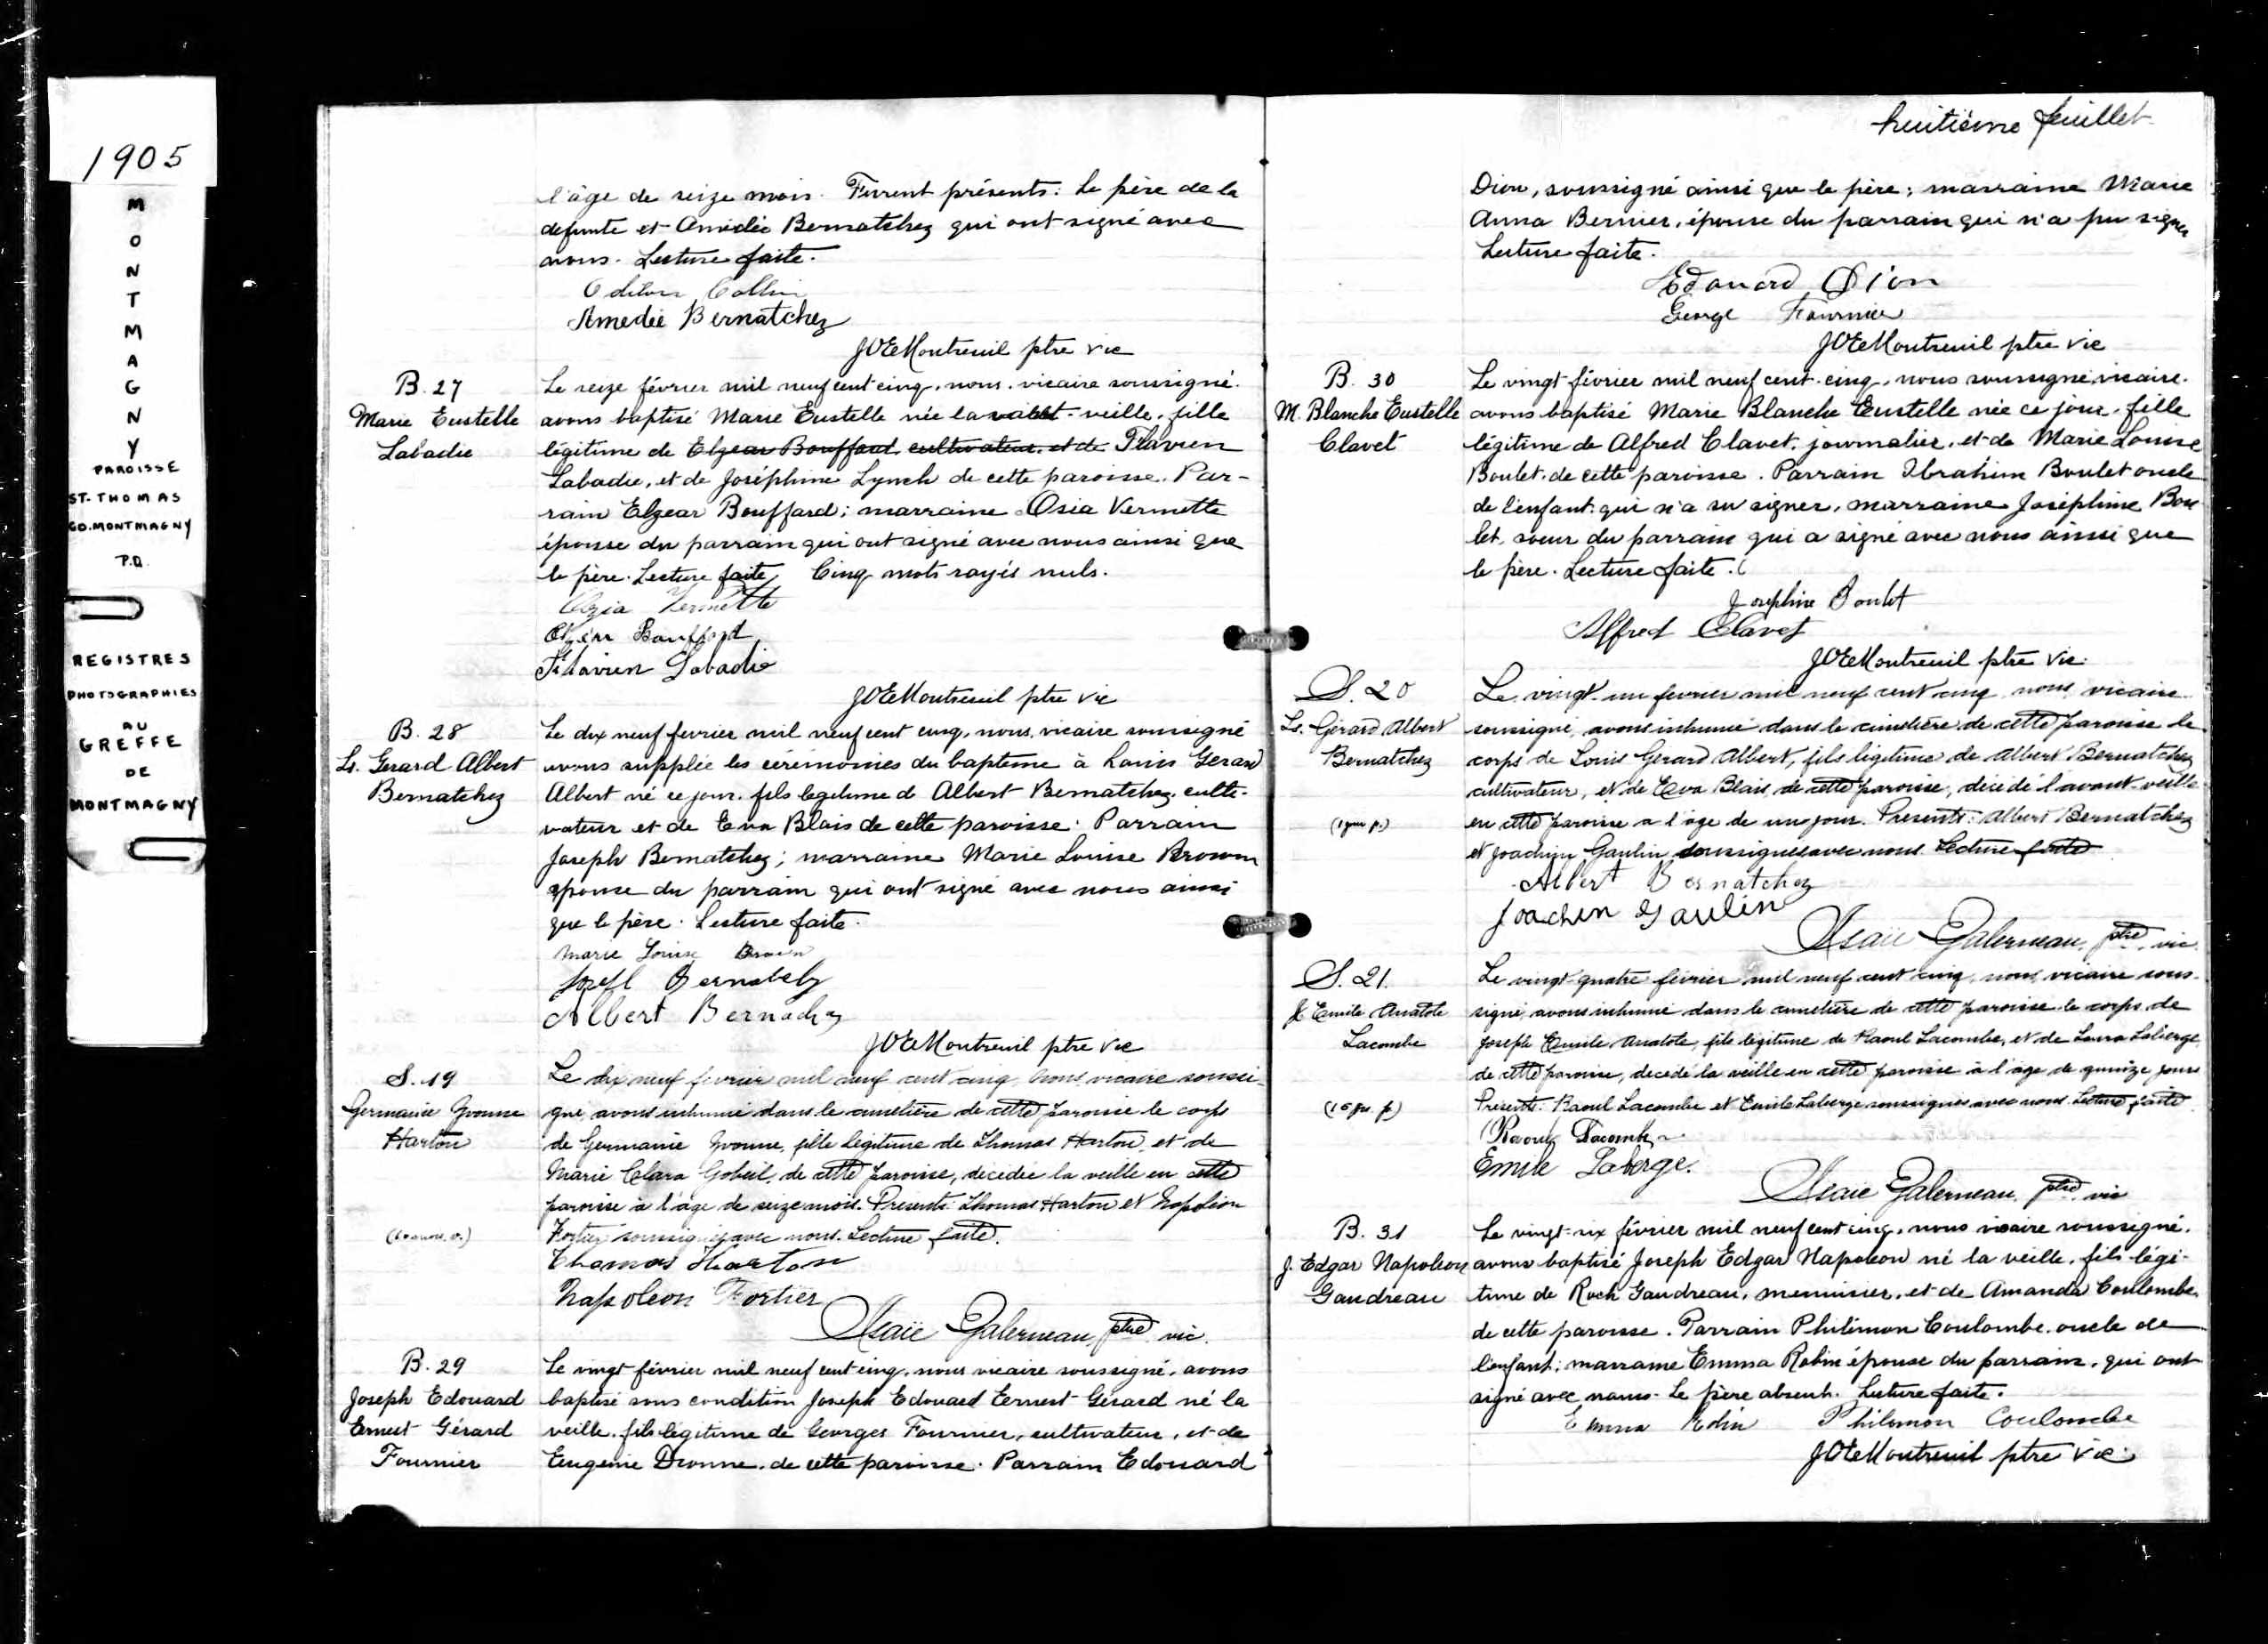 1905
M
O
N
T
M
A
G
N
Y
PAROISSE
ST. THOMAS
CO. MONTMAGNY
P.Q.
REGISTRES
PHOTOGRAPHIES
AU
GREFFE
DE
MONTMAGNY
l'âge de seize mois. Furent présents: Le père de la
defunte et Amédée Bernatchez qui ont signé avec
nous. Lecture faite.
Collin
Amedée Bernatchez
JOEMontreuil ptre vic
B. 27
Marie Eustelle
Labadie
Le seize février mil neuf cent cinq, nous, vicaire soussigné
avons baptisé Marie Eustelle née la veille, fille
légitime de Elzear Bouffard, cultivateur, et de Flavien
Labadie, et de Joséphine Lynch de cette paroisse. Par-
rain Elzear Bouffard; marraine Osia Vermette
épouse du parrain qui ont signé avec nous ainsi que
le père. Lecture faite. Cinq mots rayés nuls.
Ozia Vermette
Elzear Bouffard
Flavien Labadie
JOEMontreuil ptre vic
B. 28
Ls. Gerard Albert
Bernatchez
Le dix neuf fevrier mil neuf cent cinq, nous, vicaire soussigné
avons supplée les cérémonies du bapteme à Louis Gerard
Albert né ce jour, fils legitime d Albert Bernatchez, culti-
vateur et de Eva Blais de cette paroisse. Parrain
Joseph Bernatchez; marraine Marie Louise Brown
epouse du parrain qui ont signé avec nous ainsi
que le père. Lecture faite.
Marie Louise
Albert
JOEMontreuil ptre vic
S. 19
Germaine Yvonne
Harton
Le dix neuf fevrier mil neuf cent cinq, nous vicaire soussi-
gné, avons inhumé dans le cimetière de cette paroisse le corps
de Germaine Yvonne, fille légitime de Thomas Harton, et de
Marie Clara Gobeil, de cette paroisse, decedée la veille en cette
paroisse à l'âge de seize mois. Presents: Thomas Harton et Napoléon
Fortier soussignés avec nous. Lecture faite.
Thomas Harton
Napoleon Fortier
Isaïe Galerneau, ptre vic.
B. 29
Joseph Edouard
Ernest Gérard
Fournier
Le vingt février mil neuf cent cinq, nous vicaire soussigné, avons
baptisé sous condition Joseph Edouard Eernest Gérard né la
veille, fils legitime de Georges Fournier, cultivateur, et de
Eugenie Dionne, de cette paroisse. Parrain Edouard
huitième feuillet
Dion, soussigné ainsi que le père; marraine Marie
Anna Bernier, épouse du parrain qui n'a pu signer
Lecture faite.
Edouard Dion
George Fournier
JOEMontreuil ptre vic
B. 30
M. Blanche Eustelle
Clavet
Le vingt février mil neuf cent cinq, nous soussigné vicaire
avons baptisé Marie Blanche Eustelle née ce jour, fille
légitime de Alfred Clavet, journalier, et de Marie Louise
Boulet, de cette paroisse. Parrain Ibrahim Boulet oncle
de l'enfant qui n'a su signer, marraine Joséphine Bou
let, soeur du parrain qui a signé avec nous ainsi que
le père. Lecture faite.
Josephine Boulet
Alfred Clavet
JOEMontreuil ptre vic
S. 20
Ls. Gérard Albert
Bernatchez
(1 jour p.)
Le vingt-un fevrier mil neuf cent cinq nous vicaire
soussigné, avons inhumé dans le cimetière de cette paroisse le
corps de Louis Gerard Albert, fils légitime de Albert Bernatchez
cultivateur, et de Eva Blais, de cette paroisse, décédé l'avant-veille
en cette paroisse a l'âge de un jour. Presents: Albert Bernatchez
et Joachim Gaulin soussignés avec nous. Lecture faite
Albert Bernatchez
Joachin Gaulin
Isaïe Galerneau, ptre vic
S. 21.
J. Emile Anatole
Lacombe
Le vingt-quatre février mil neuf cent cinq, nous, vicaire sous-
signé, avons inhumé dans le cimetière de cette paroisse le corps de
Joseph Emile Anatole, fils légitime de Raoul Lacombe, et de Laura Laberge
de cette paroisse, decedé la veille en cette paroisse à l'âge de quinze jours
Presents: Raoul Lacombe et Emile Laberge soussignés avec nous. Lecture faite
Raoul Lacombe
Emile Laberge.
Isaïe Galerneau, ptre vic
B. 31
J. Edgar Napoléon
Gaudreau
Le vingt-six février mil neuf cent cinq, nous vicaire soussigné,
avons baptisé Joseph Edgar Napoléon né la veille, fils légi-
time de Roch Gaudreau, menuisier, et de Amanda Coulombe
de cette paroisse. Parrain Philémon Coulombe, oncle de
l'enfant; marraine Emma Robin épouse du parrain, qui ont
signé avec nous. Le père absent. Lecture faite.
Emma Robin Philemon Coulombe
JOEMontreuil ptre vic